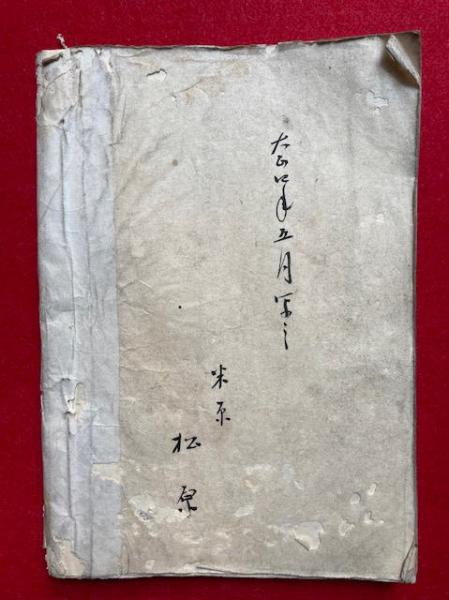 大正四年五月写之
米原
松原